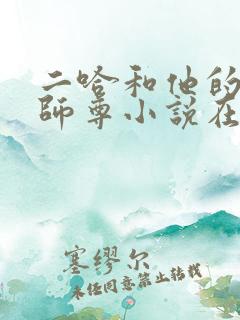 二哈和他的
師尊小説在
塞缪尔
未经同意禁止转载